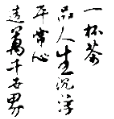 一杯茶
品人生沉浮
平常心
造万千世界